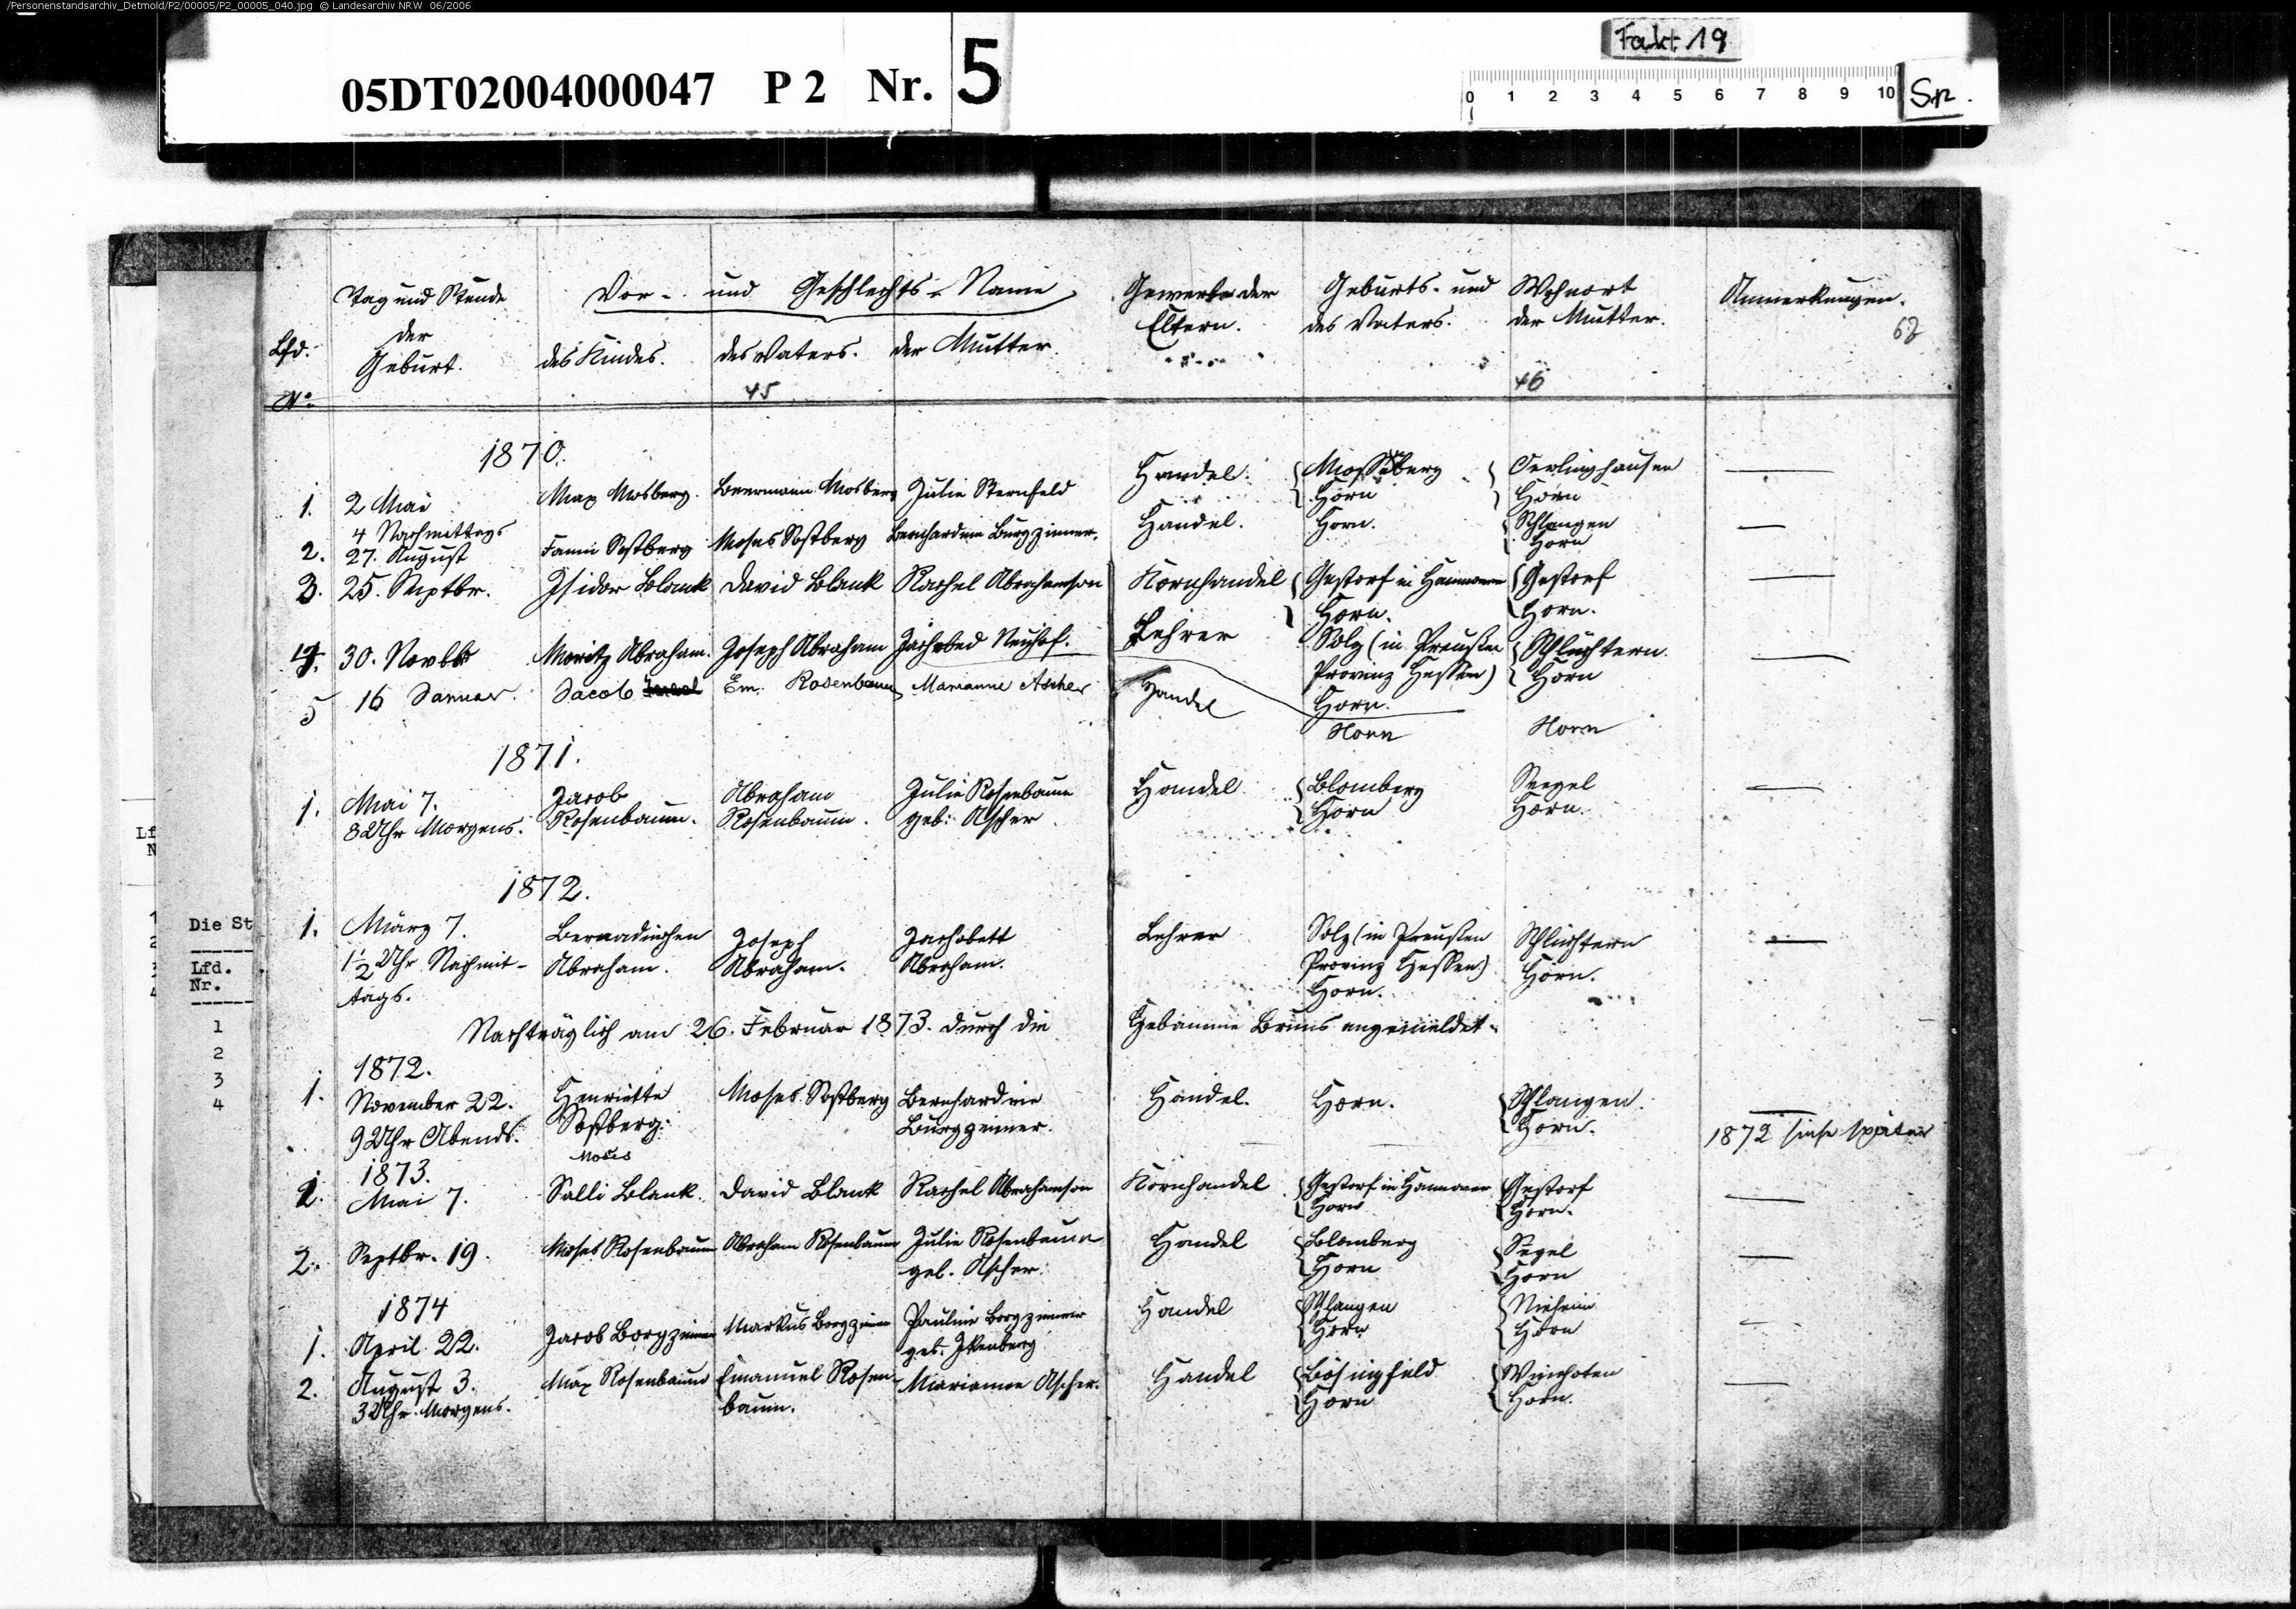 /Personenstandsarchiv_Detmold/P2/00005/P2_00005_040.jpg © Landesarchiv NRW 06/2006
Fakt. 19
05DT02004000047 P 2 Nr. 5
0 1 2 3 4 5 6 7 8 9 10
Lfd. No. Tag und Stunde der Geburt. Vor- und Geschlechts-Name Gewerbe der Eltern. Geburts- und Wohnort Anmerkungen.
des Kindes. des Vaters. der Mutter. des Vaters. der Mutter.
45 46
1870.
1. 2 Mai Max Mosberg. Mosberg Julie Sternfeld Handel. Mossberg Horn Oerlinghausen Horn
4 Nachmittags
2. 27. August Fanni Sostberg Moses Sostberg Bernhardine Burgzinner. Handel. Horn. Schlangen Horn
3. 25. Septbr. Isidor Blank David Blank Rachel Abrahamson Kornhandel Gestorf in Hannover Horn. Gestorf Horn.
4. 30. Novbr Moritz Abraham. Joseph Abraham Neuhof. Lehrer Solz (in Preußen Provinz Hessen) Horn. Schlüchtern. Horn
5 16 Januar. Jacob Em. Rosenbaum Marianne Ascher Handel Horn Horn
1871.
1. Mai 7. 8 Uhr Morgens. Jacob Rosenbaum. Abraham Rosenbaum. Julie Rosenbaum geb. Ascher Handel Blomberg Horn Horn.
1872.
1. März 7. 1½ Uhr Nachmittags. Abraham. Joseph Abraham. Abraham. Lehrer Solz (in Preußen Provinz Hessen) Horn. Schlüchtern Horn.
Nachträglich am 26. Februar 1873. durch die Hebamme Bruns angemeldet.
1872.
1. November 22. 9 Uhr Abends. Henriette Sostberg. Moses Sostberg Bernhardine Burgzinner. Handel. Horn. Schlangen. Horn.
1872 siehe später
1873. Moses
1. Mai 7. Salli Blank. David Blank Rachel Abrahamson Kornhandel Gestorf in Hannover Horn Gestorf Horn.
2. Septbr. 19. Moses Rosenbaum Abraham Rosenbaum Julie Rosenbaum geb. Ascher. Handel Blomberg Horn Horn
1874
1. April 22. Jacob Borgzinner Markus Borgzinner Pauline Borgzinner geb. Ikenberg Handel Schlangen Horn Nieheim Horn
2. August 3. 3 Uhr Morgens. Max Rosenbaum Emanuel Rosenbaum. Marianne Ascher. Handel Bösingfeld Horn Winschoten Horn.
Die St
Lfd.
Nr.
1
2
3
4